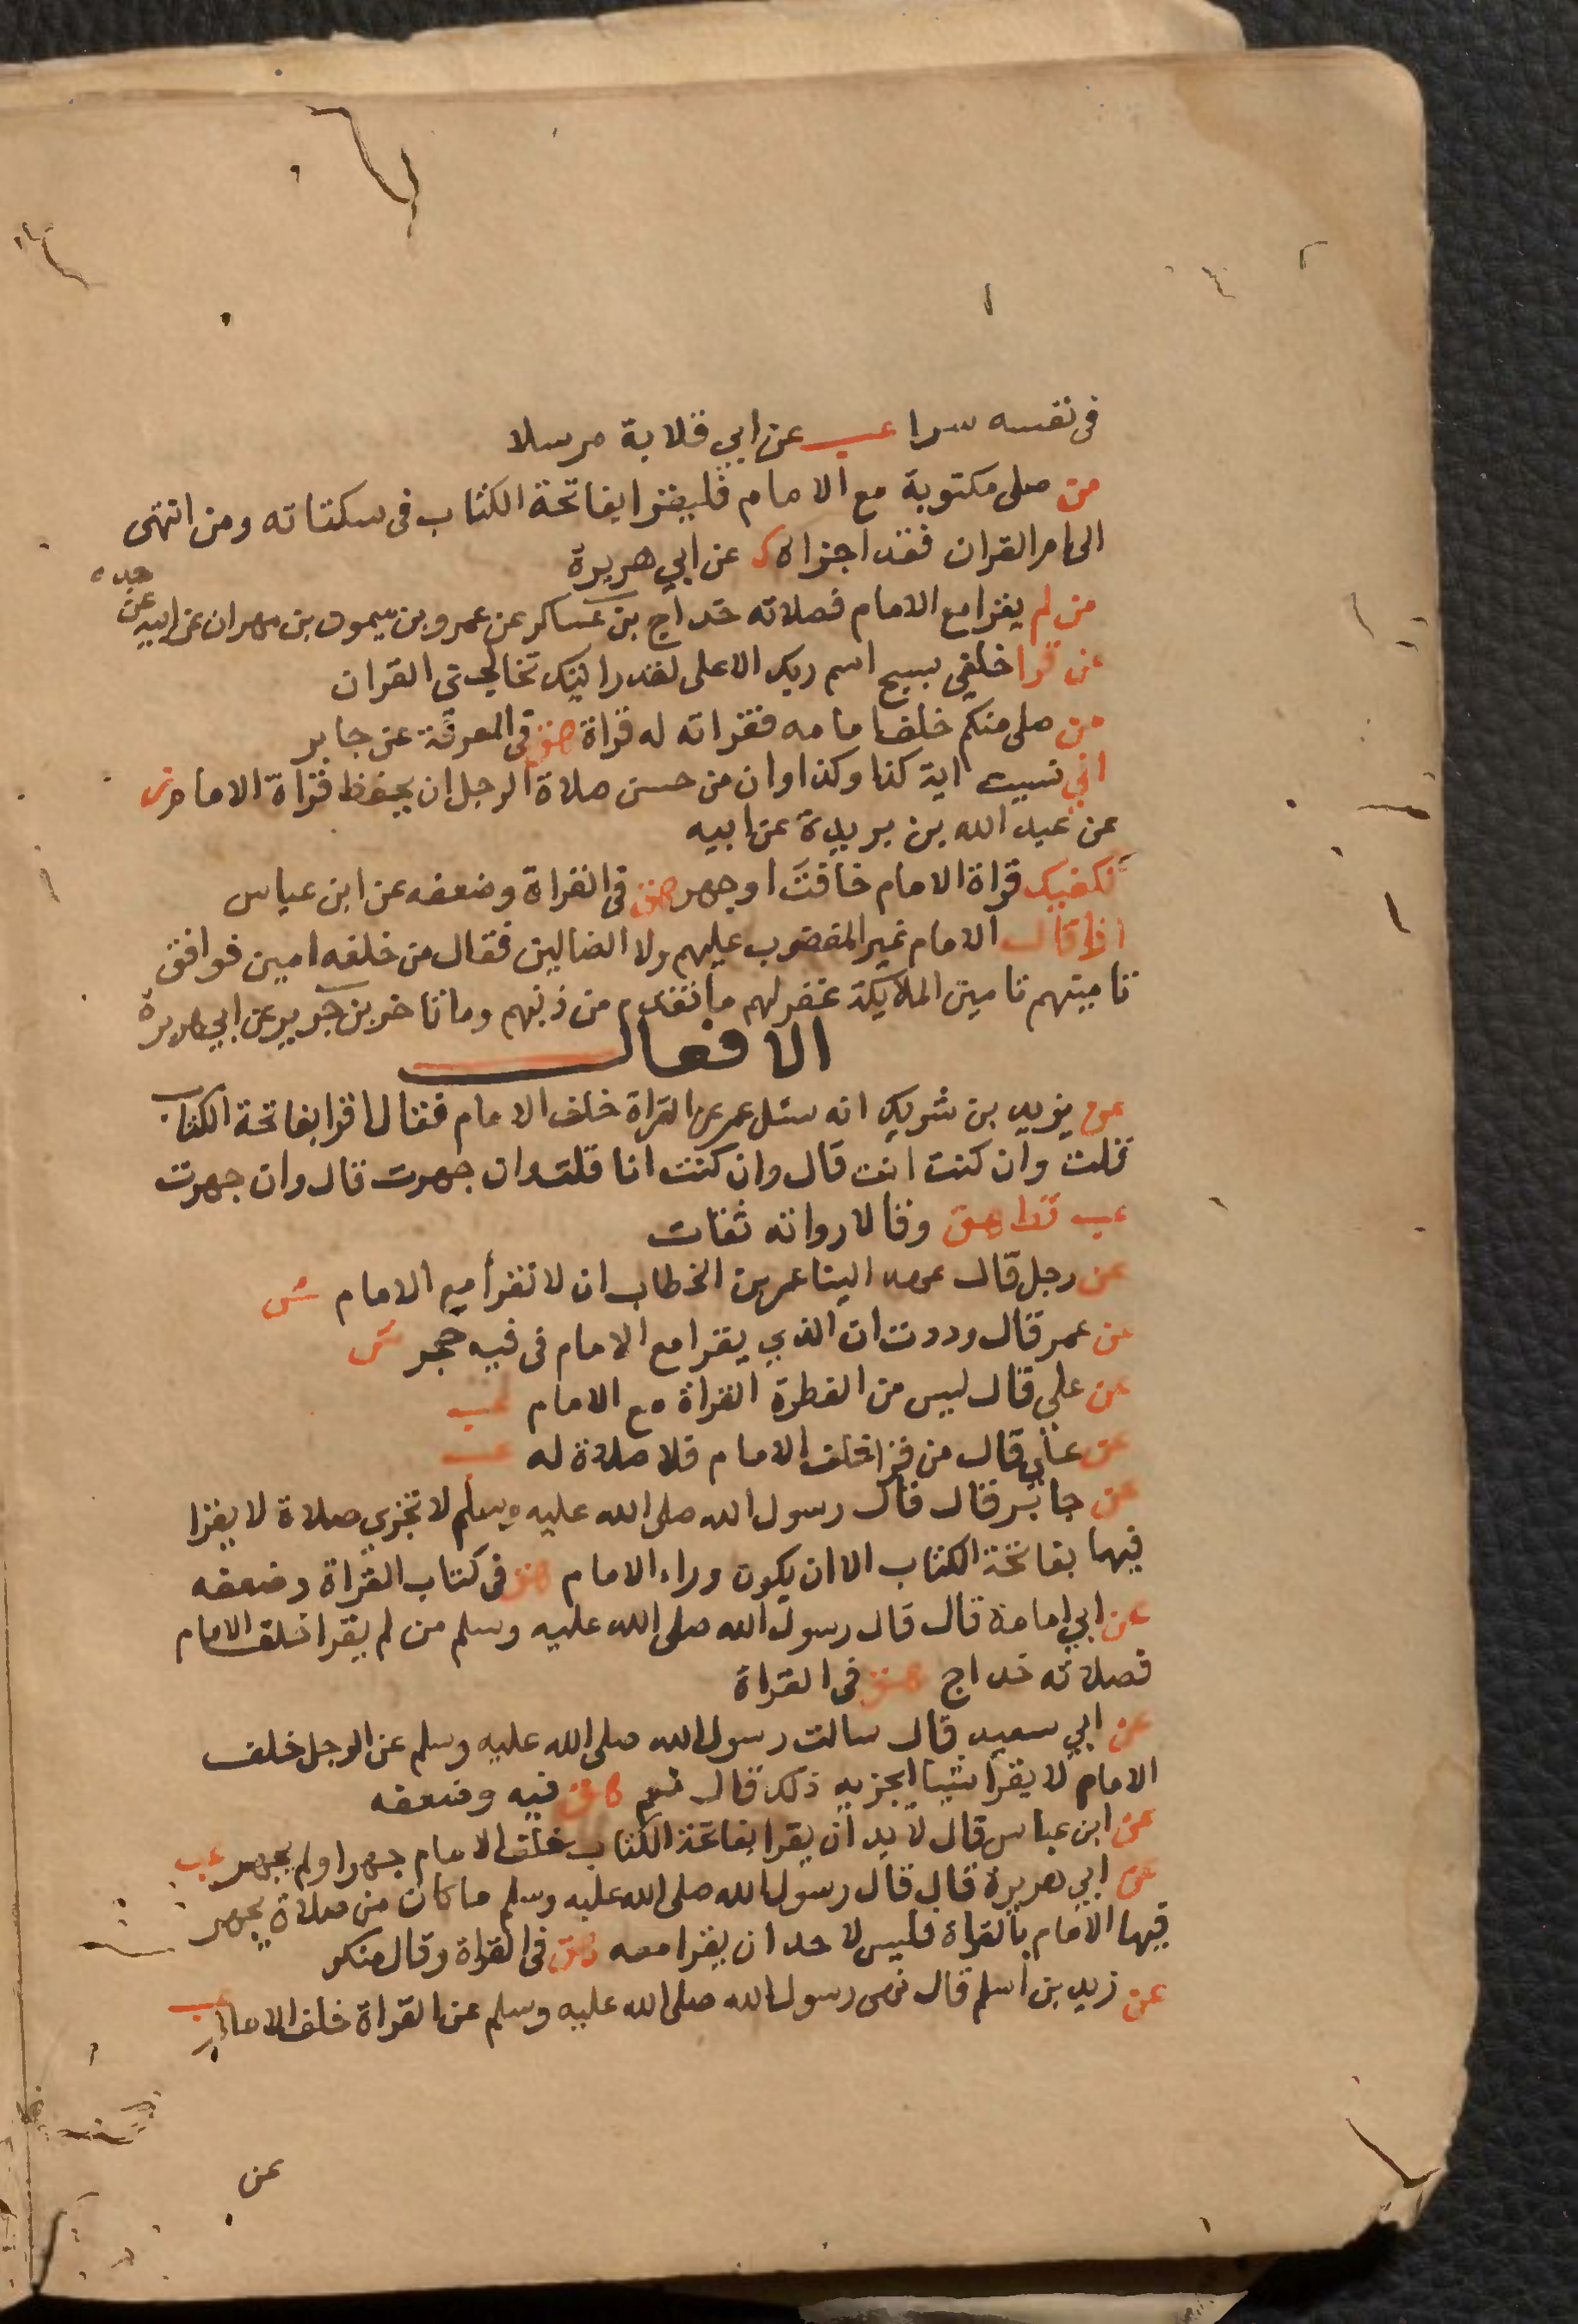 في نفسه سرا عب عن ابي قلابة مرسلا
من صلى مكتوبة مع الامام فليقرا بفاتحة الكتاب في سكتاته ومن انتهى
الى ام القران فقد اجزاه ك عن ابي هريرة
من لم يقرا مع الامام فصلاته خداج بن عساكر عن عمرو بن ميمون بن مهران عن ابيه عن
جده
من قرا خلفي بسبح اسم ربك الاعلى لقد رايتك تخالجني القران
من صلى منكم خلف امامه فقراته له قراة هق في المعرفة عن جابر
اني نسيت اية كذا وكذا وان من حسن صلاة الرجل ان يحفظ قراة الامام
عن عبد الله بن بريدة عن ابيه
تكفيك قراة الامام خافت او جهر هق في القراة وضعفه عن ابن عباس
اذا قال الامام غير المغضوب عليهم ولا الضالين فقال من خلفه امين فوافق
تامينهم تامين الملايكة غفر لهم ما تقدم من ذنبهم وما تاخر بن جرير عن ابي هريرة
الافعال
عن يزيد بن شريك انه سئل عمر عن القراة خلف الامام فقال اقرا بفاتحة الكتاب
قلت وان كنت انت قال وان كنت انا قلت وان جهرت قال وان جهرت
عب قط هق وقالا رواته ثقات
عن رجل قال عهد الينا عمر بن الخطاب ان لا نقرأ مع الامام ش
عن عمر قال وددت ان الذي يقرا مع الامام في فيه حجر ش
عن علي قال ليس من الفطرة القراة مع الامام عب
عن علي قال من قرا خلف الامام فلا صلاة له عب
عن جابر قال قال رسول الله صلى الله عليه وسلم لا تجزي صلاة لا يقرا
فيها بفاتحة الكتاب الا ان يكون وراء الامام هق في كتاب القراة وضعفه
عن ابي امامة قال قال رسول الله صلى الله عليه وسلم من لم يقرا خلف الامام
فصلاته خداج هق في القراة
عن ابي سعيد قال سالت رسول الله صلى الله عليه وسلم عن الرجل خلف
الامام لا يقرأ شيبا ايجزيه ذلك قال نعم هق فيه وضعفه
عن ابن عباس قال لا بد ان يقرا بفاتحة الكتاب خلف الامام جهر او لم يجهر عب
عن ابي هريرة قال قال رسول الله صلى الله عليه وسلم ما كان من صلاة يجهر
فيها الامام بالقراة فليس لاحد ان يقرا معه هق في القراة وقال منكر
عن زيد بن اسلم قال نهى رسول الله صلى الله عليه وسلم عن القراة خلف الامام عب
عن